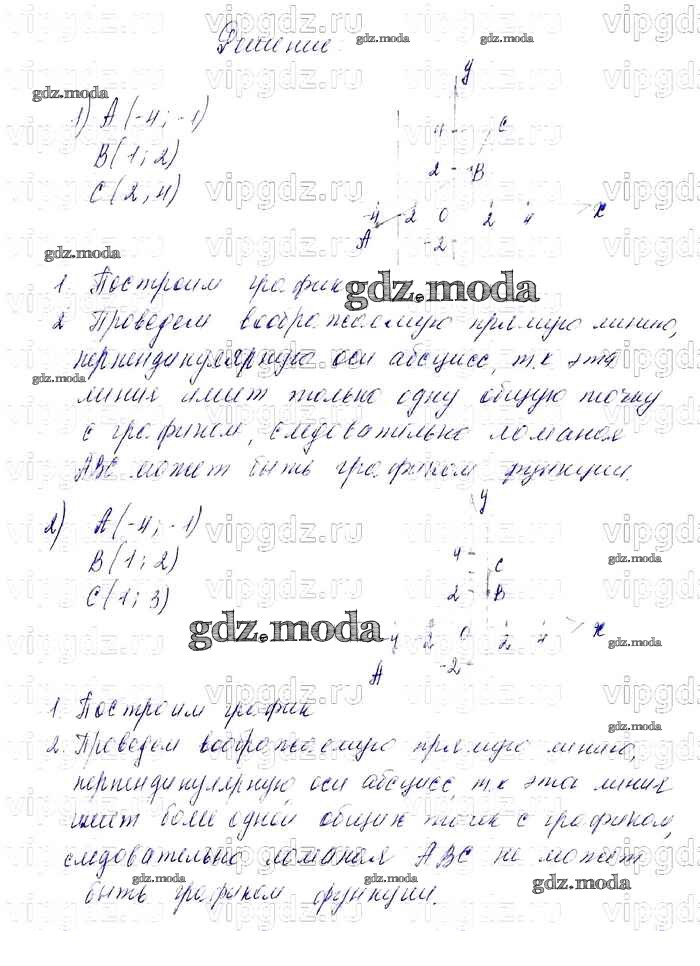 Решение:
1) A(-4; -1)
B(1; 2)
C(2; 4)
y
4
C
2
B
-4 -2 0 2 4 x
A
-2
1. Построим график
2. Проведем воображаемую прямую линию,
перпендикулярную оси абсцисс, т.к эта
линия имеет только одну общую точку
с графиком, следовательно ломаная
ABC может быть графиком функции.
2) A(-4; -1)
B(1; 2)
C(1; 3)
y
4
C
2
B
-4 -2 0 2 4 x
A
-2
1. Построим график
2. Проведем воображаемую прямую линию,
перпендикулярную оси абсцисс, т.к эта линия
имеет более одной общих точек с графиком,
следовательно ломаная ABC не может
быть графиком функции.
gdz.moda
vipgdz.ru